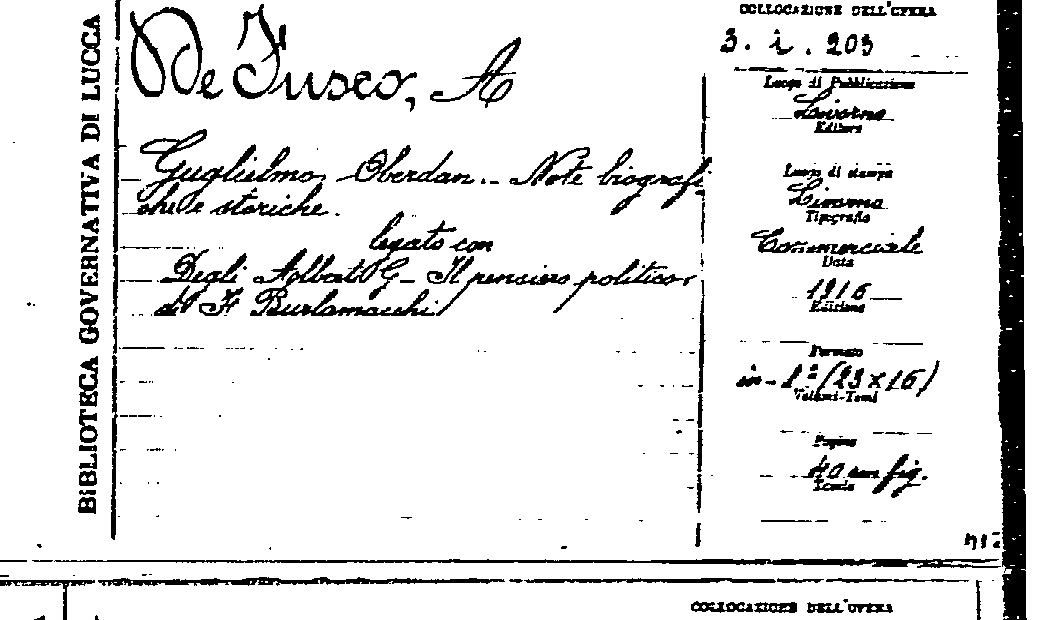 BIBLIOTECA GOVERNATIVA DI LUCCA
De Fusco, A
Guglielmo Oberdan.. Note biografi-
che e storiche.
legato con
Degli Azbati G - Il pensiero politico
di F Burlamacchi
COLLOCAZIONE DELL'OPERA
3. i. 203
Luogo di Pubblicazione
Livorno
Editore
Luogo di stampa
Livorno
Tipografia
Commerciale
Data
1916
Edizione
Formato
in-8º (23x16)
Volumi-Tomi
Pagine
40 con fig.
Tavole
COLLOCAZIONE DELL'OPERA